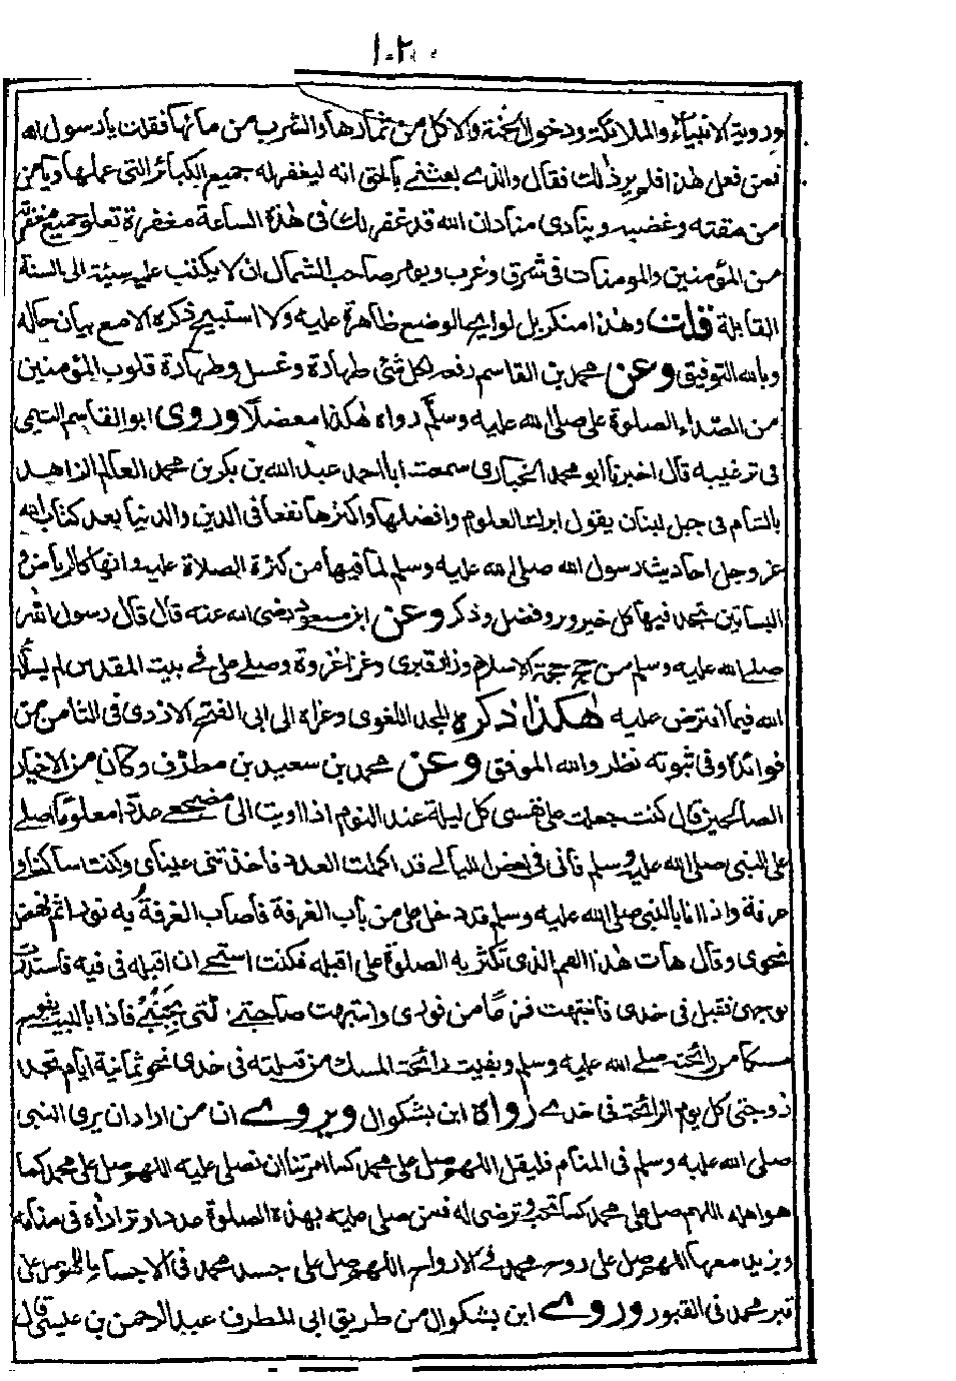 ١٠٢
ورؤية الانبياء والملائكة ودخول الجنة والاكل من ثمارها والشرب من مائها فقلت يا رسول الله
فمن فعل هذا فلم ير ذلك فقال والذي بعثني بالحق انه ليغفر له جميع الكبائر التي عملها ويامن
من مقته وغضبه وينادى مناد ان الله قد غفر لك فى هذه الساعة مغفرة تعلو جميع مغفرة
من المؤمنين والمومنات فى شرق وغرب ويومر صاحب الشمال ان لا يكتب عليه سيئة الى السنة
القابلة قلت وهذا منكر بل لوايح الوضع ظاهرة عليه ولا استبيح ذكره الا مع بيان حاله
وبالله التوفيق وعن محمد بن القاسم رفعه لكل شئ طهارة وغسل وطهارة قلوب المؤمنين
من الصداء الصلوة على صلى الله عليه وسلم رواه هكذا معضلا وروى ابو القاسم التيمى
فى ترغيبه قال اخبرنا ابو محمد الخبازى سمعت ابا احمد عبد الله بن بكر بن محمد العالم الزاهد
بالشام فى جبل لبنان يقول ابرك العلوم وافضلها واكثرها نفعا فى الدين والدنيا بعد كتاب الله
عز وجل احاديث رسول الله صلى الله عليه وسلم لما فيها من كثرة الصلاة عليه وانها كالرياض و
البساتين تجد فيها كل خير وبر وفضل وذكر وعن ابن مسعود رضى الله عنه قال قال رسول الله
صلى الله عليه وسلم من حج حجة الاسلام وزار قبرى وغزا غزوة وصلى على فى بيت المقدس لم يسئله
الله فيما افترض عليه هكذا ذكره المجد اللغوى وعزاه الى ابى الفتح الازدى فى الثامن من
فوائده وفى ثبوته نظر والله الموفق وعن محمد بن سعيد بن مطرف وكان من الاخيار
الصالحين قال كنت جعلت على نفسى كل ليلة عند النوم اذا اويت الى مضجعى عددا معلوما اصلى
على النبى صلى الله عليه وسلم فانى فى بعض الليالى قد اكملت العدد فاخذتنى عيناى وكنت ساكنا و
غرفة واذا انا بالنبى صلى الله عليه وسلم قد دخل على من باب الغرفة فاصاب الغرفة به نورا ثم نهض
نحوى وقال هات هذا الفم الذى تكثر به الصلوة على اقبله فكنت استحى ان اقبله فى فيه فاستدرت
بوجهى فقبل فى خدى فانتبهت فزعا من فورى وانتبهت صاحبتى التى بجنبى فاذا بالبيت يفوح
مسكا من رائحته صلى الله عليه وسلم وبقيت رائحة المسك من قبلته فى خدى نحو ثمانية ايام تجد
زوجتى كل يوم الرائحة فى خدى رواه ابن بشكوال ويروى ان من اراد ان يرى النبى
صلى الله عليه وسلم فى المنام فليقل اللهم صل على محمد كما امرتنا ان نصلى عليه اللهم صل على محمد كما
هو اهله اللهم صل على محمد كما تحب وترضى له فمن صلى عليه بهذه الصلوة عدد وترا راه فى منامه
ويزيد معها اللهم صل على روح محمد فى الارواح اللهم صل على جسد محمد فى الاجساد اللهم صل على
قبر محمد فى القبور وروى ابن بشكوال من طريق ابى المطرف عبد الرحمن بن عيسى قال